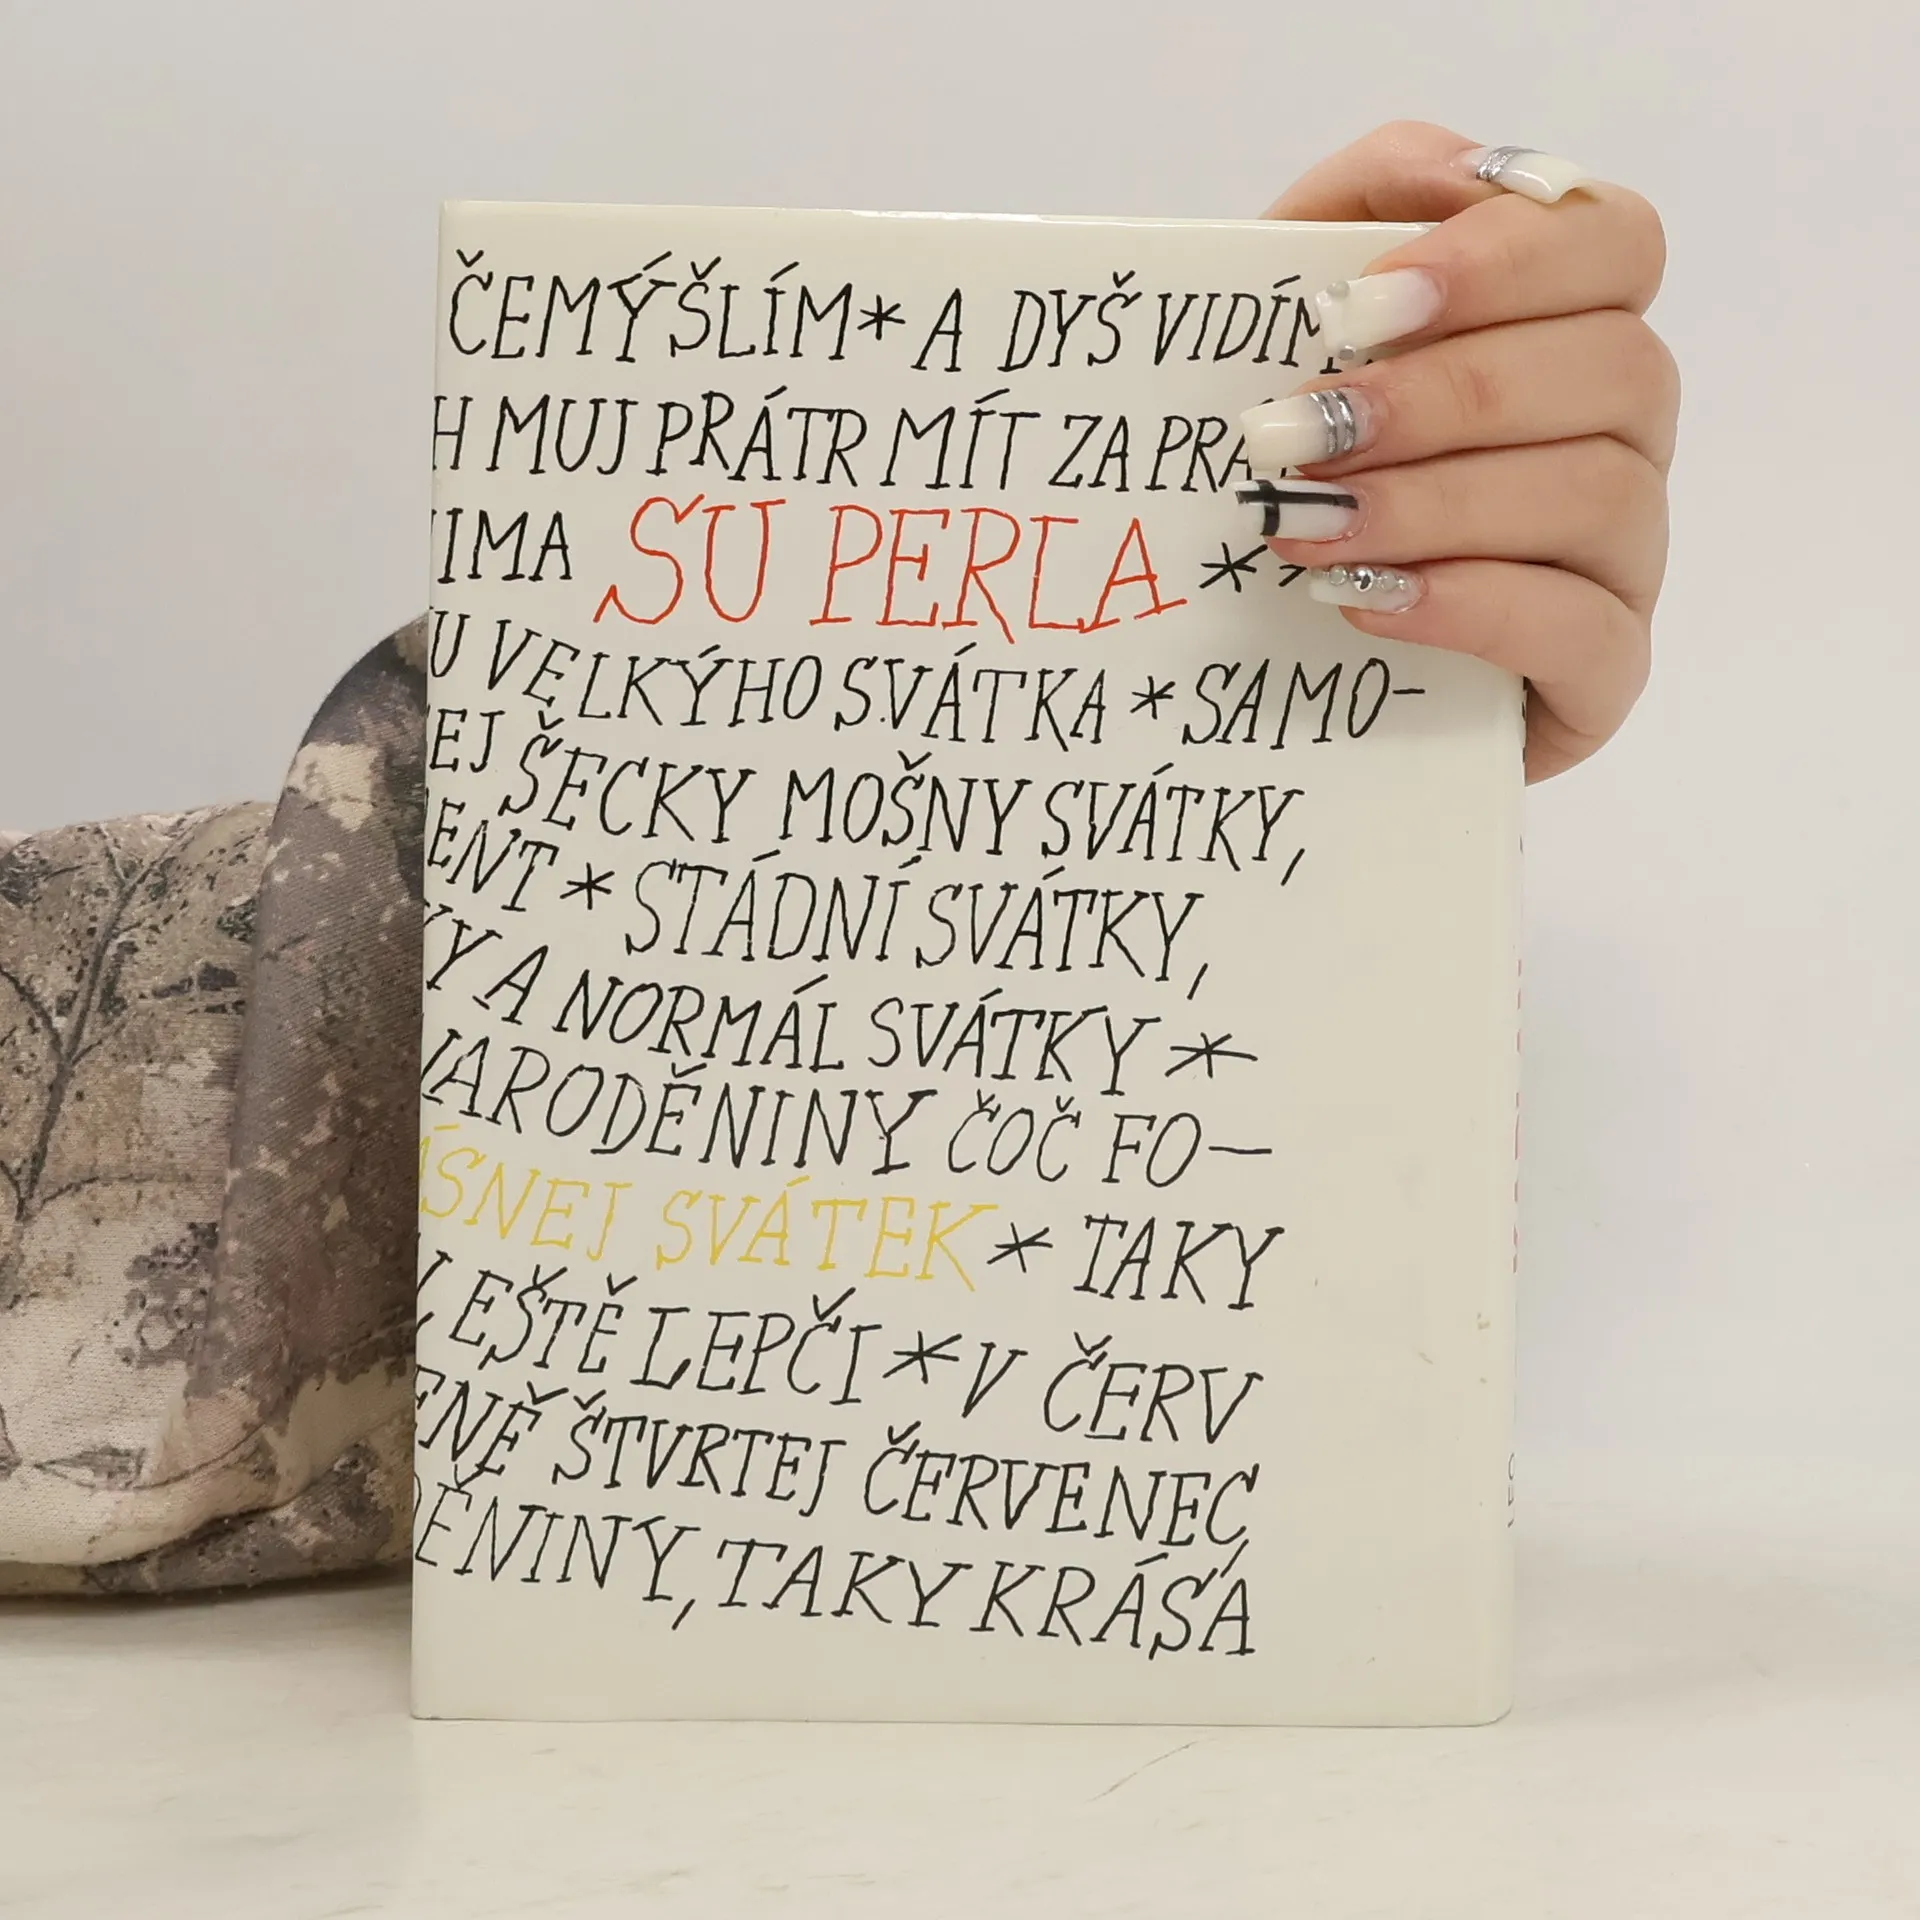 ČEMÝŠLÍM * A DYŠ VIDÍM
H MUJ PRÁTR MÍT ZA PRÁ
IMA SU PERLA *
U VELKÝHO SVÁTKA * SAMO-
EJ ŠECKY MOŠNY SVÁTKY,
ENT * STÁDNÍ SVÁTKY,
Y A NORMÁL SVÁTKY *
NARODĚNINY ČOČ FO-
ÁSNEJ SVÁTEK * TAKY
EŠTĚ LEPČI * V ČERV
ENĚ ŠTVRTEJ ČERVENEC
DĚNINY, TAKY KRÁSÁ